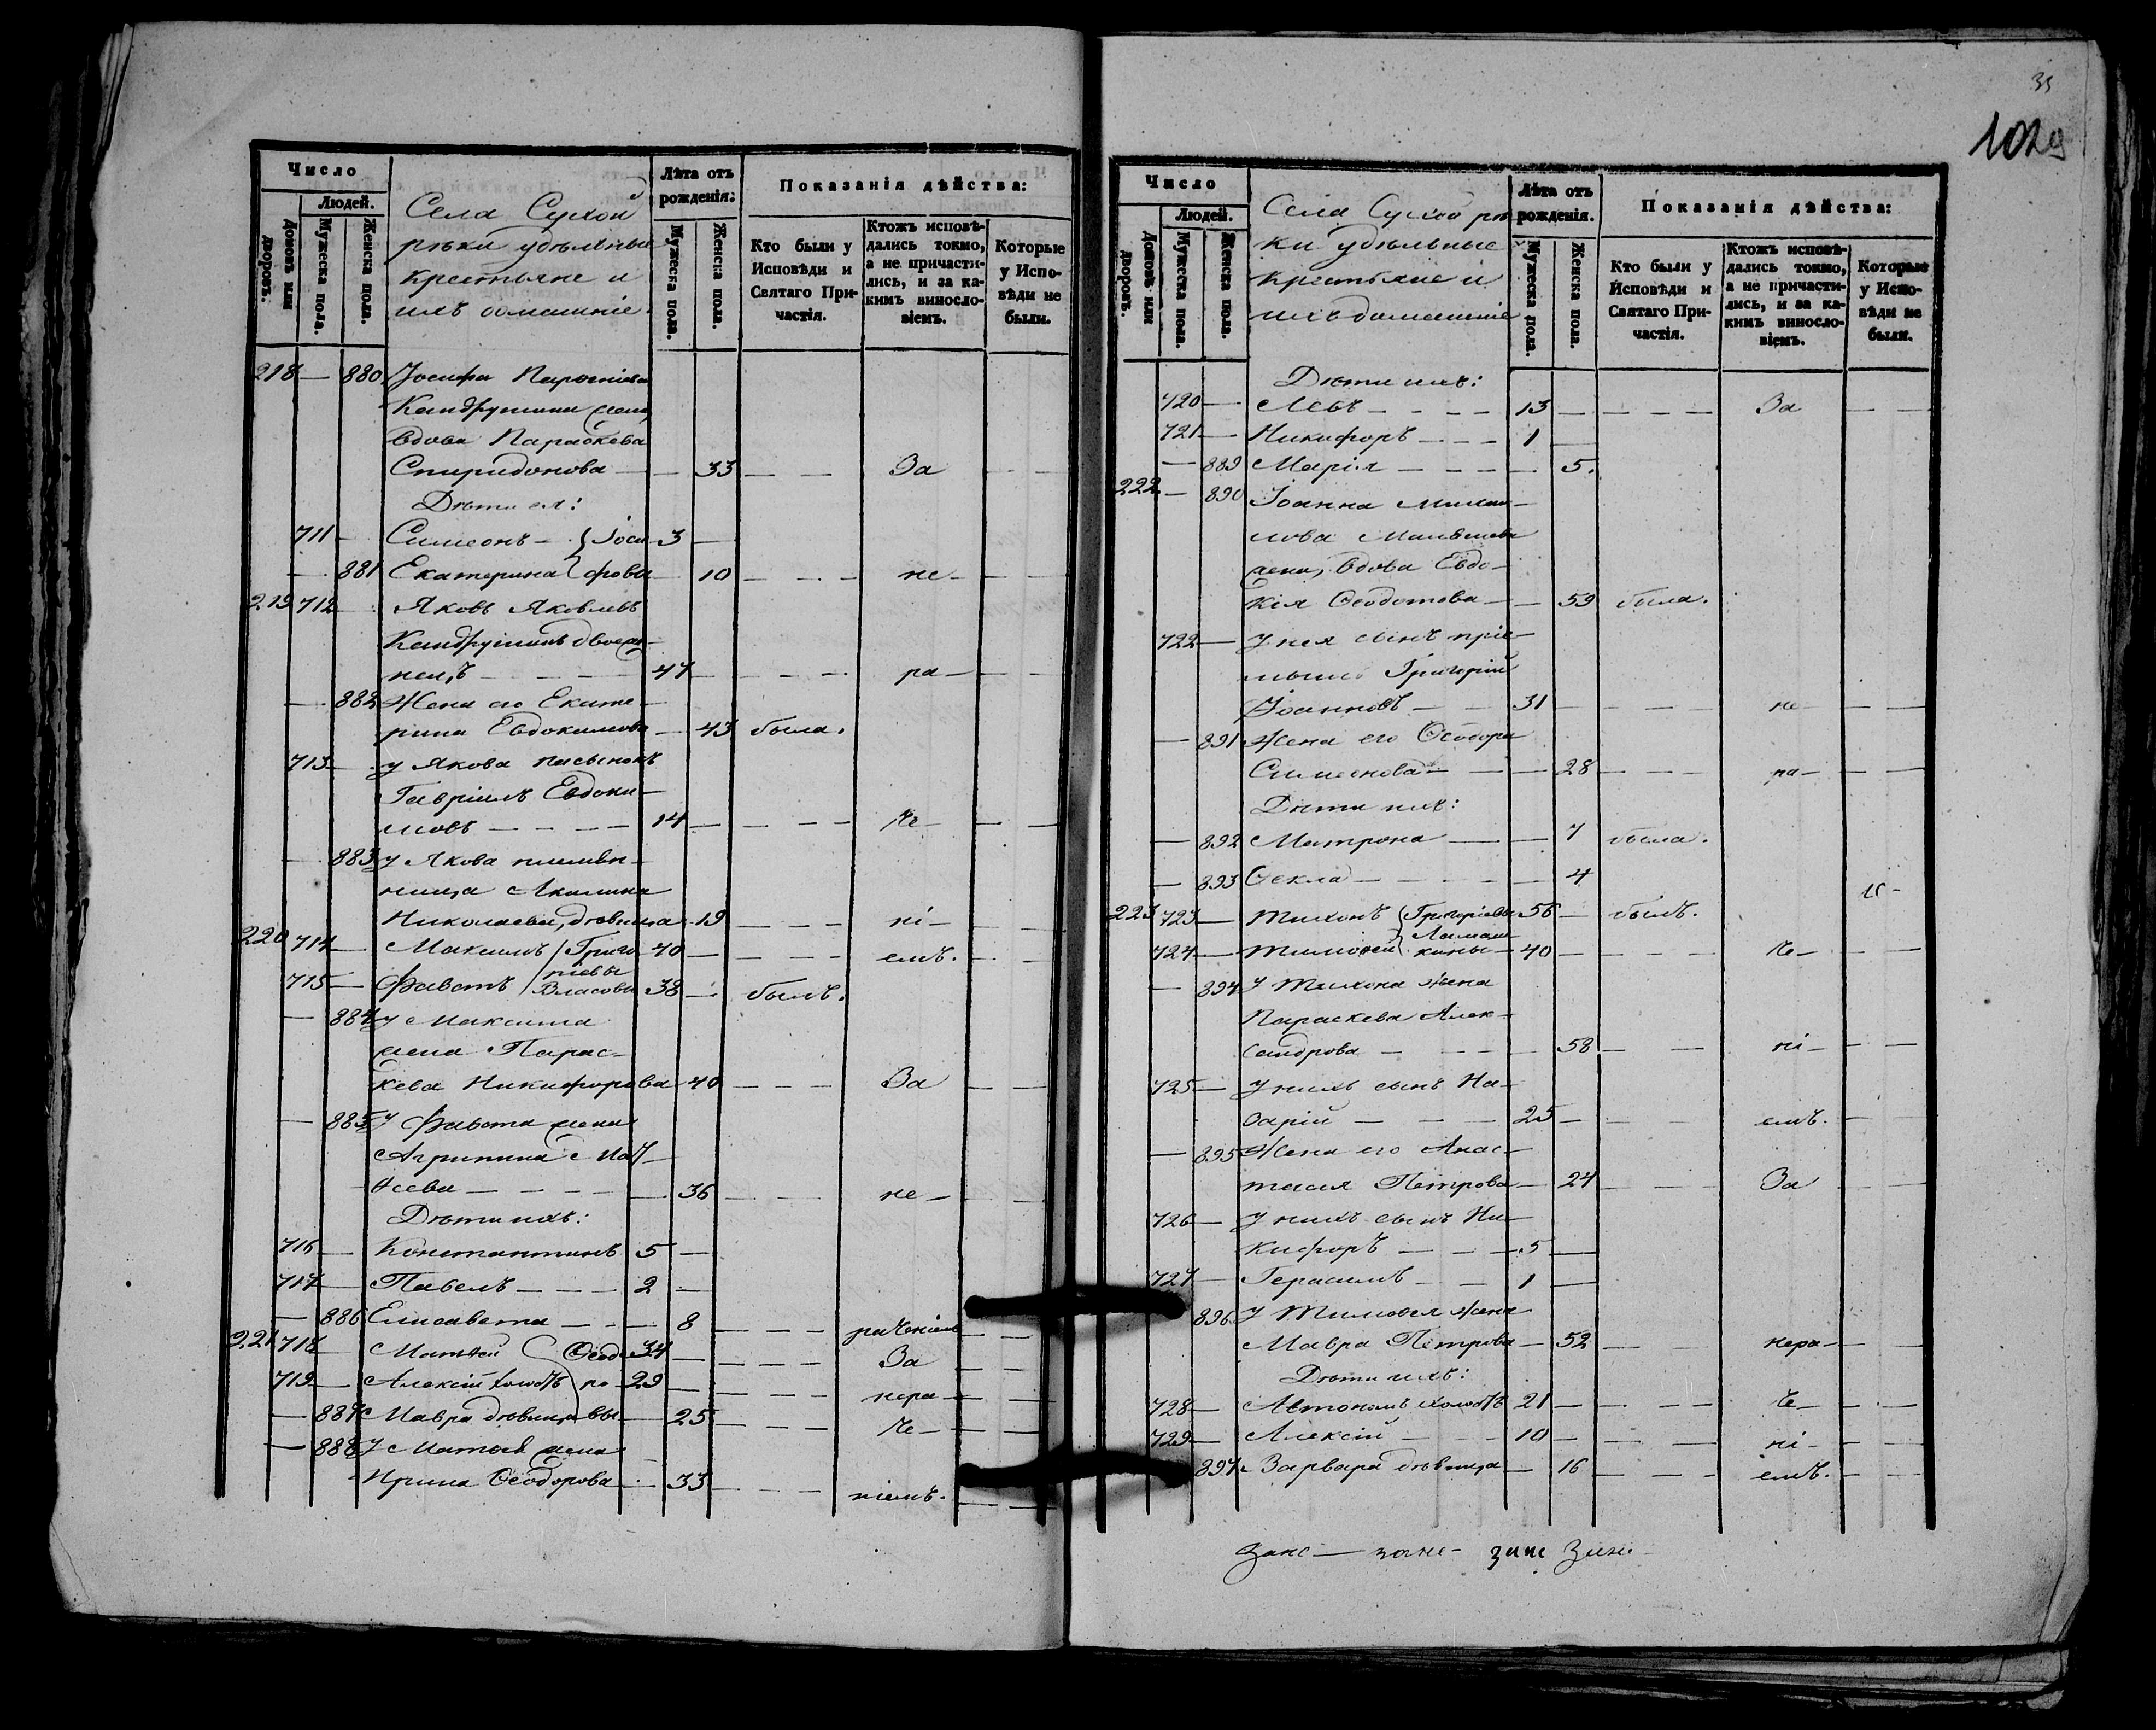 Число
Людей.
Домовъ или дворовъ.
Мужеска пола.
Женска пола.
Села Сухой
рѣки удѣльные
крестьяне и
ихъ домашніе.
Лѣта отъ рожденія:
Мужеска пола.
Женска пола.
Показанія дѣйства:
Кто были у Исповѣди и Святаго Причастія.
Ктожъ исповѣдались токмо, а не причастились, и за какимъ винословіемъ.
Которые у Исповѣди не были.
218 — 880 Іосифа
жена,
вдова Параскева
Спиридонова — — 33 — — — За — —
Дѣти ея:
711 — Симеонъ — } Іоси 3 —
— 881 Екатерина } фовы — 10 — — — не — — —
219 712 — Яковъ Яковлевъ
нецъ — — — — 47 — — — — ра — — —
— 882 Жена его Екате-
рина Евдокимова — 43 была.
713 — у Якова пасынокъ
Гавріилъ Евдоки-
мовъ — — — — 14 — — — — че — — —
— 883 у Якова племян-
ница Акилина
Николаева, дѣвица — 19 — — — ні — — —
220 714 — Максимъ } Григо 40 — — — — емъ. — —
ріевы
715 — Фавстъ } Власовы 38 — былъ.
— 884 у Максима
жена Парас-
кева Никифорова — 40 — — — За — —
— 885 у Фавста жена
Агрипина Мат-
ѳеева — — — — — 36 — — — не — — —
Дѣти ихъ:
716 — Константинъ 5 —
717 — Павелъ — — — 2 —
— 886 Елисавета — — — 8 — — — — раченіемъ — —
221 718 Матѳей } Ѳеодо 34 — — — — За — —
719 — Алексій холостъ } ро 29 — — — — нера — —
— 887 Мавра дѣвица } вы — 25 — — — — че — — —
— 888 У Матѳея жена
Ирина Ѳеодорова — 33 — — — ніемъ. — —
35
1029
Число
Людей.
Домовъ или дворовъ.
Мужеска пола.
Женска пола.
Села Сухой рѣ
ки удѣльные
крестьяне и
ихъ домашніе
Лѣта отъ рожденія.
Мужеска пола.
Женска пола.
Показанія дѣйства:
Кто были у Исповѣди и Святаго Причастія.
Ктожъ исповѣдались токмо, а не причастились, и за какимъ винословіемъ.
Которые у Исповѣди не были.
Дѣти ихъ:
720 — Левъ — — — — 13 — — — — За — —
721 — Никифоръ — — — 1 —
— 889 Марія — — — — — 5.
222 — 890 Іоанна Михаи-
лова
жена, вдова Евдо-
кія Ѳеодотова — — 59 была.
722 — У нея сынъ пріе-
мышъ Григорій
Іоанновъ — — 31 — — — — не — — —
— 891 Жена его Ѳеодора
Симеонова — — — 28 — — — ра — — —
Дѣти ихъ:
— 892 Матрона — — 7 была.
— 893 Ѳекла — — — — — 4
223 723 — Тихонъ } Григорьевы 56 — былъ.
724 — Тимоѳей } кины — 40 — — — — че — — —
— 894 У Тихона жена
Параскева Алек-
сандрова — — — — 58 — — ні — — —
725 — У нихъ сынъ На-
зарій — — — 25 — — — — емъ. — —
— 895 Жена его Анас-
тасія Петрова — 24 — — — За — —
726 — У нихъ сынъ Ни-
кифоръ — — — 5 —
727 — Герасимъ — — 1 —
896 У Тимоѳея жена
Мавра Петрова — 52 — — нера — — —
Дѣти ихъ:
728 — Автономъ холостъ 21 — — — — че — — —
729 — Алексій — — 10 — — — — ні — — —
897 Варвара дѣвица — 16 — — — емъ. — —